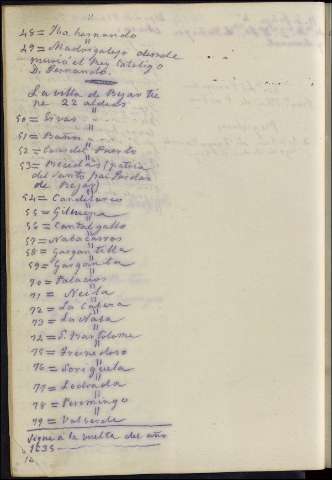 48 = Na hernando
49 = Madrigalejo donde
murió el Rey Catolico
D. Fernando.
La villa de Bejar tie
ne 22 aldeas
50 =
51 = Baños
52 = Cans del Puerto
53 = Becedas (patria
del Santo
de Bejar)
54 = Candelario
55 =
56 = Cantalgallo
57 = Nabacarros
58 = Gargantilla
59 = Garganta
70 = Palacios
71 = Neila
72 = La Cabera
73 = La Naba
72 = S. Bartolome
75 = Fresnedoso
76 = Soriguela
77 = Ledrada
78 = Peromingo
79 = Valverde
Sigue á la vuelta del año
1635
12